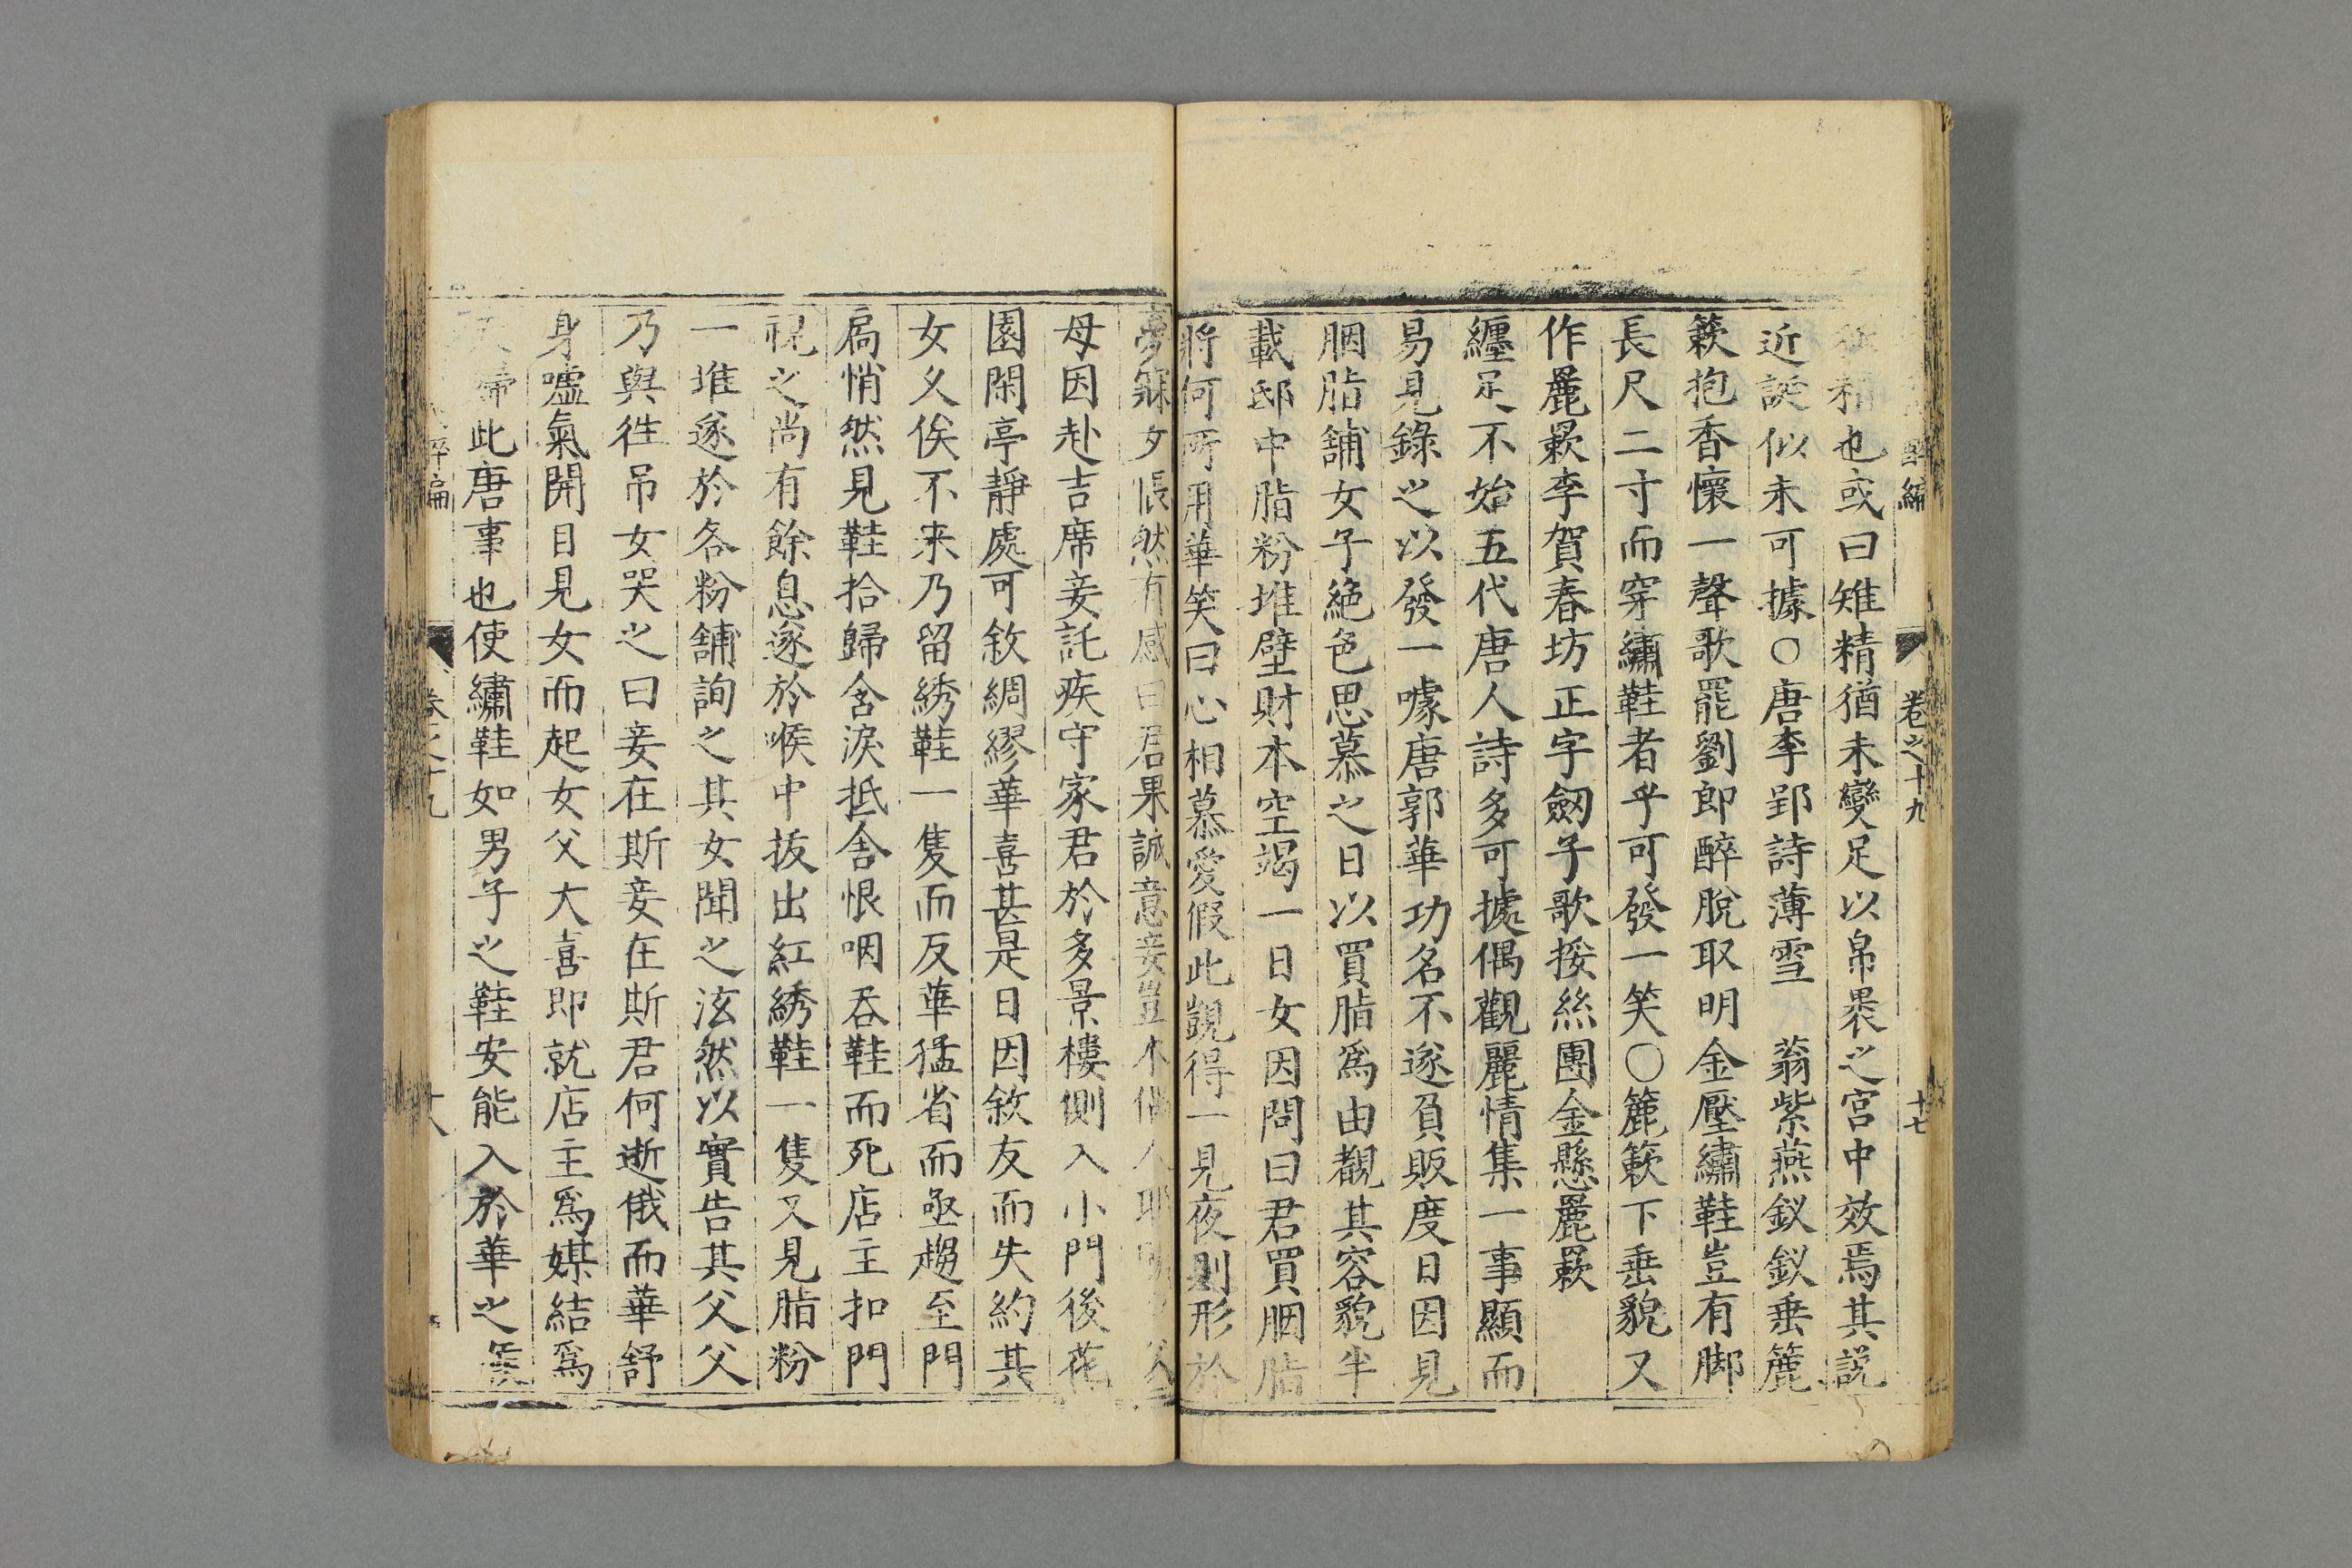 醉編 卷之十九 十七
精也或曰雉精猶未變足以帛褁之宮中效焉其説
近誕似未可據〇唐李郢詩薄雪 蓊紫燕釵釵垂簏
簌抱香懷一聲歌罷劉郎醉脫取明金壓繡鞋豈有脚
長尺二寸而穿繡鞋者乎可發一笑〇簏簌下垂貌又
作麗𦌵李賀春坊正字劒子歌挼絲團金懸麗𦌵
纏足不始五代唐人詩多可據偶觀麗情集一事顯而
易見錄之以發一噱唐郭華功名不遂負販度日因見
胭脂舖女子絕色思慕之日以買脂爲由覩其容貌半
載邸中脂粉堆壁財本空竭一日女因問曰君買胭脂
將何所用華笑曰心相慕愛假此覬得一見夜則形於
夢寐女悵然有感曰君果誠意妾豈木偶人耶 父
母因赴吉席妾託疾守家君於多景樓側入小門後花
園閑亭靜處可敘綢繆華喜甚是日因敘友而失約其
女久俟不来乃留綉鞋一隻而反華猛省而亟趨至門
扃悄然見鞋拾歸含淚抵舍恨咽吞鞋而死店主扣門
視之尚有餘息遂於喉中拔出紅綉鞋一隻又見脂粉
一堆遂於各粉舖詢之其女聞之泫然以實告其父父
乃與徃吊女哭之曰妾在斯妾在斯君何逝俄而華舒
身噓氣開目見女而起女父大喜即就店主爲媒結爲
夫婦此唐事也使繡鞋如男子之鞋安能入於華之喉
醉編 卷之十九 十八